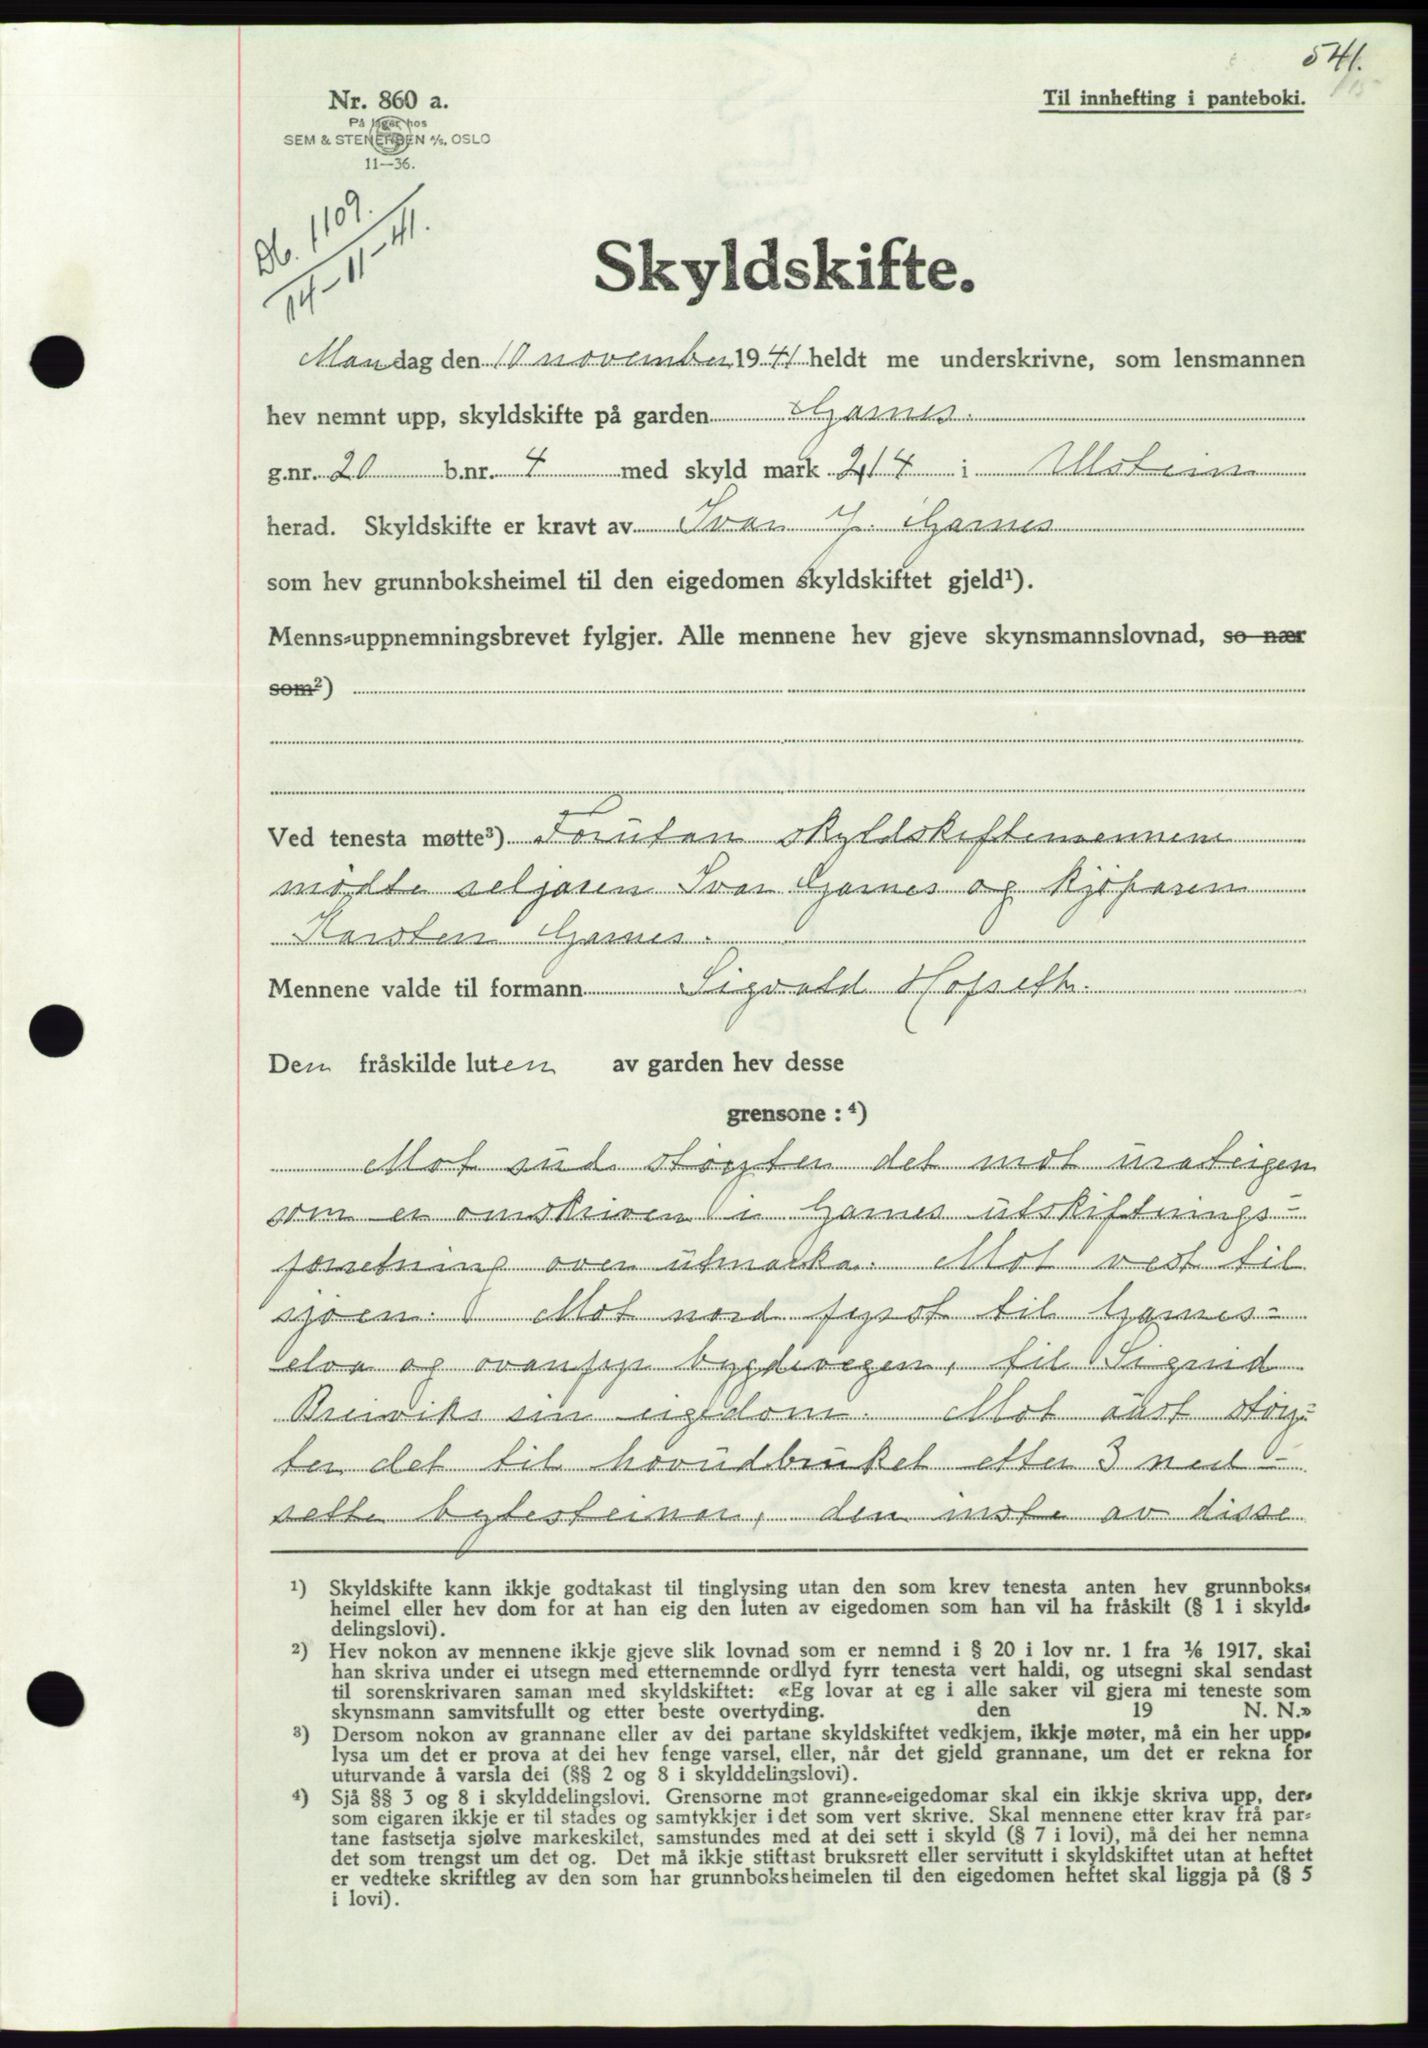 541.
Nr. 860 a.
På lager hos
SEM & STENERSEN A/S, OSLO
11—36.
Til innhefting i panteboki.
Db. 1109.
14-11-41.
Skyldskifte.
Mandag den 10 november 1941 heldt me underskrivne, som lensmannen
hev nemnt upp, skyldskifte på garden Garnes.
g.nr. 20 b.nr. 4 med skyld mark 2,14 i Ulstein
herad. Skyldskifte er kravt av Ivar J. Garnes
som hev grunnboksheimel til den eigedomen skyldskiftet gjeld¹).
Menns-uppnemningsbrevet fylgjer. Alle mennene hev gjeve skynsmannslovnad, so nær
som²)
Ved tenesta møtte³) Forutan skyldskiftemennene
mødte seljaren Ivar Garnes og kjøparen
Karsten Garnes.
Mennene valde til formann Sigvald Hofseth.
Den fråskilde luten av garden hev desse
grensone : ⁴)
Mot sud støyter det mot urateigen
som er omskriven i Garnes utskiftnings-
foretning over utmarka. Mot vest til
sjøen. Mot nord fyrst til Garnes-
elva og ovanfyr bygdevegen, til Sigrid
Breiviks sin eigedom. Mot aust støy-
ter det til hovudbruket etter 3 ned-
sette bytesteinar, den inste av disse
¹) Skyldskifte kann ikkje godtakast til tinglysing utan den som krev tenesta anten hev grunnboks-
heimel eller hev dom for at han eig den luten av eigedomen som han vil ha fråskilt (§ 1 i skyld-
delingslovi).
²) Hev nokon av mennene ikkje gjeve slik lovnad som er nemnd i § 20 i lov nr. 1 fra 1/6 1917, skal
han skriva under ei utsegn med etternemnde ordlyd fyrr tenesta vert haldi, og utsegni skal sendast
til sorenskrivaren saman med skyldskiftet: «Eg lovar at eg i alle saker vil gjera mi teneste som
skynsmann samvitsfullt og etter beste overtyding. den 19 N. N.»
³) Dersom nokon av grannane eller av dei partane skyldskiftet vedkjem, ikkje møter, må ein her upp-
lysa um det er prova at dei hev fenge varsel, eller, når det gjeld grannane, um det er rekna for
uturvande å varsla dei (§§ 2 og 8 i skylddelingslovi).
⁴) Sjå §§ 3 og 8 i skylddelingslovi. Grensorne mot granne-eigedomar skal ein ikkje skriva upp, der-
som eigaren ikkje er til stades og samtykkjer i det som vert skrive. Skal mennene etter krav frå par-
tane fastsetja sjølve markeskilet, samstundes med at dei sett i skyld (§ 7 i lovi), må dei her nemna
det som trengst um det og. Det må ikkje stiftast bruksrett eller servitutt i skyldskiftet utan at heftet
er vedteke skriftleg av den som har grunnboksheimelen til den eigedomen heftet skal liggja på (§ 5
i lovi).